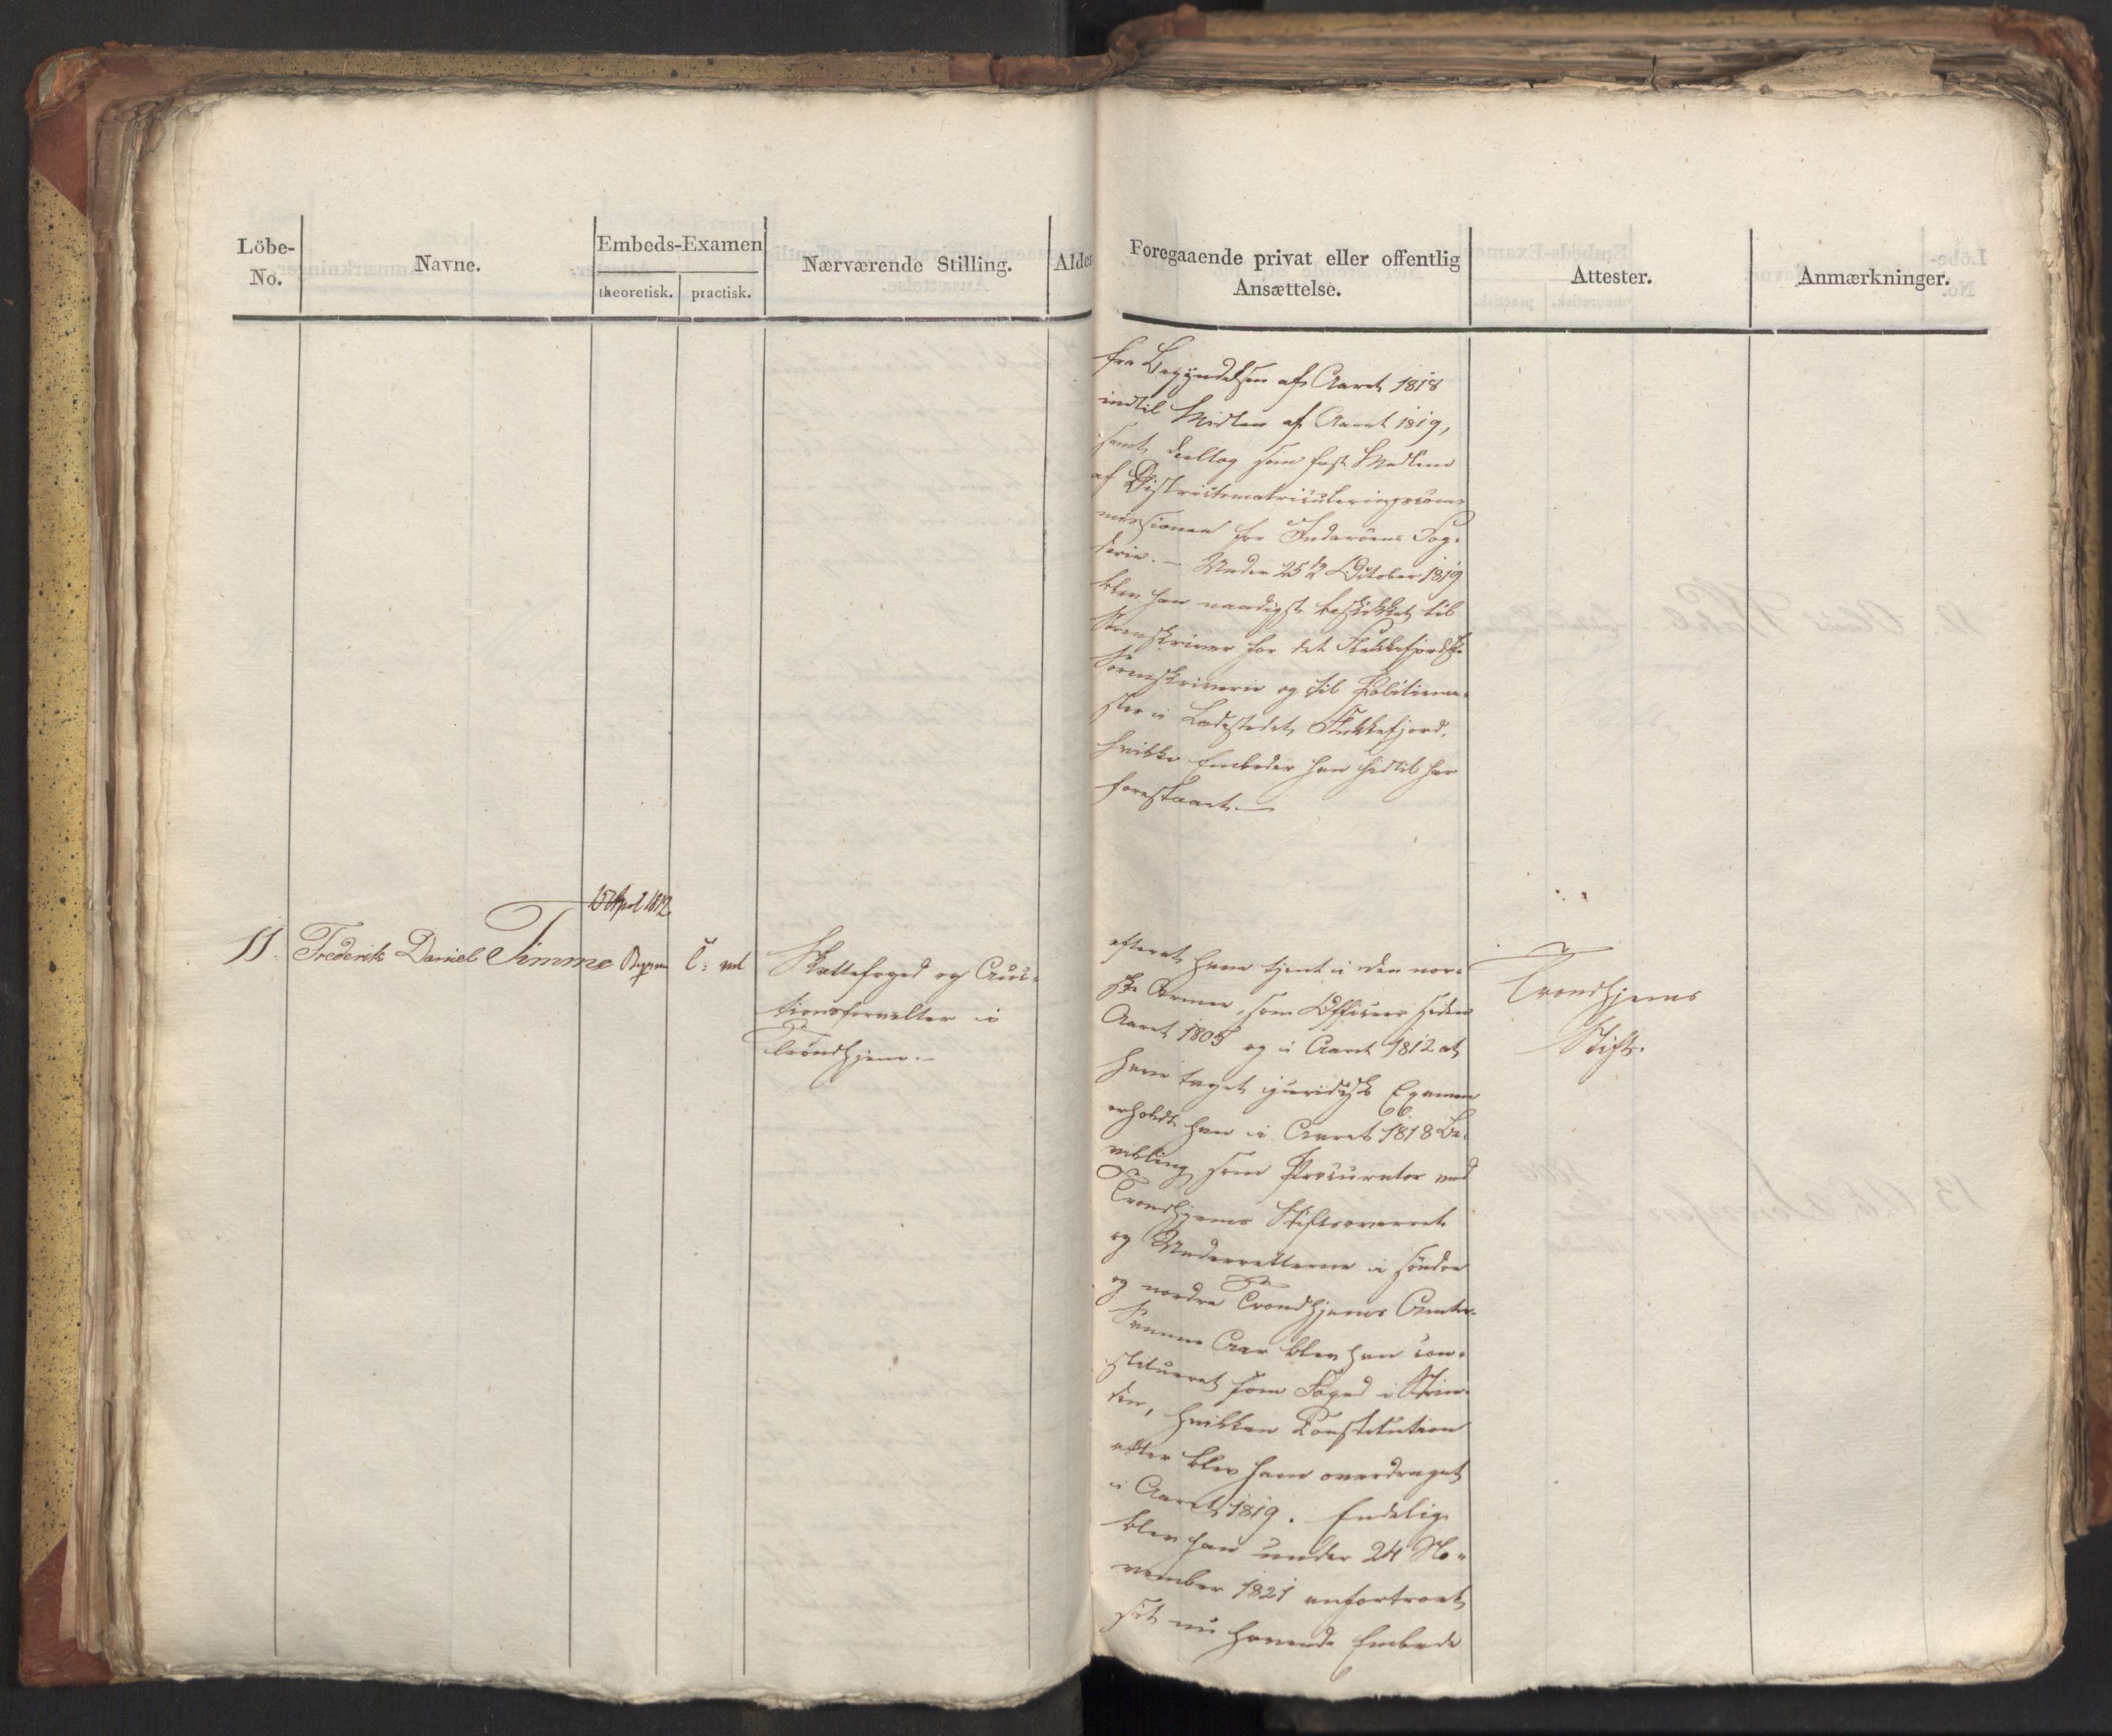 Löbe-
No.
Navne.
Embeds-Examen
theoretisk.
practisk.
Nærværende Stilling.
Alder
Foregaaende privat eller offentlig
Ansættelse.
Attester.
Anmærkninger.
fra Begyndelsen af Aaret 1818
indtil Midten af Aaret 1819,
samt deeltog som fast Medlem
af Districtsmatriculeringscom-
missionen for Inderöens Fog-
derie. — Under 25de October 1819
blev han naadigst beskikket til
Sorenskriver for det Flekkefjordske
Sorenskriverie og til Politieme-
ster i Ladestedet Flekkefjord,
hvilke Embeder han hidtil har
forestaaet. —
15 April 1812
11.
Frederik Daniel Timme
C:
Skattefoged og Auc-
tionsforvalter i
Trondhjem. —
efterat have tjent i den nor-
ske Armee, som Officeer siden
Aaret 1805 og i Aaret 1812 at
have taget juridisk Examen
erholdt han i Aaret 1818 Be-
villing som Procurator ved
Trondhjems Stiftsoverret
og Underretterne i söndre
og nordre Trondhjems Amter.
Samme Aar blev han con-
stitueret som Foged i Strin-
den, hvilken Constitution
atter blev ham overdraget
i Aaret 1819. Endelig
blev han under 24 No-
vember 1821 anfortroet
sit nu havende Embede
Trondhjems
Stift.